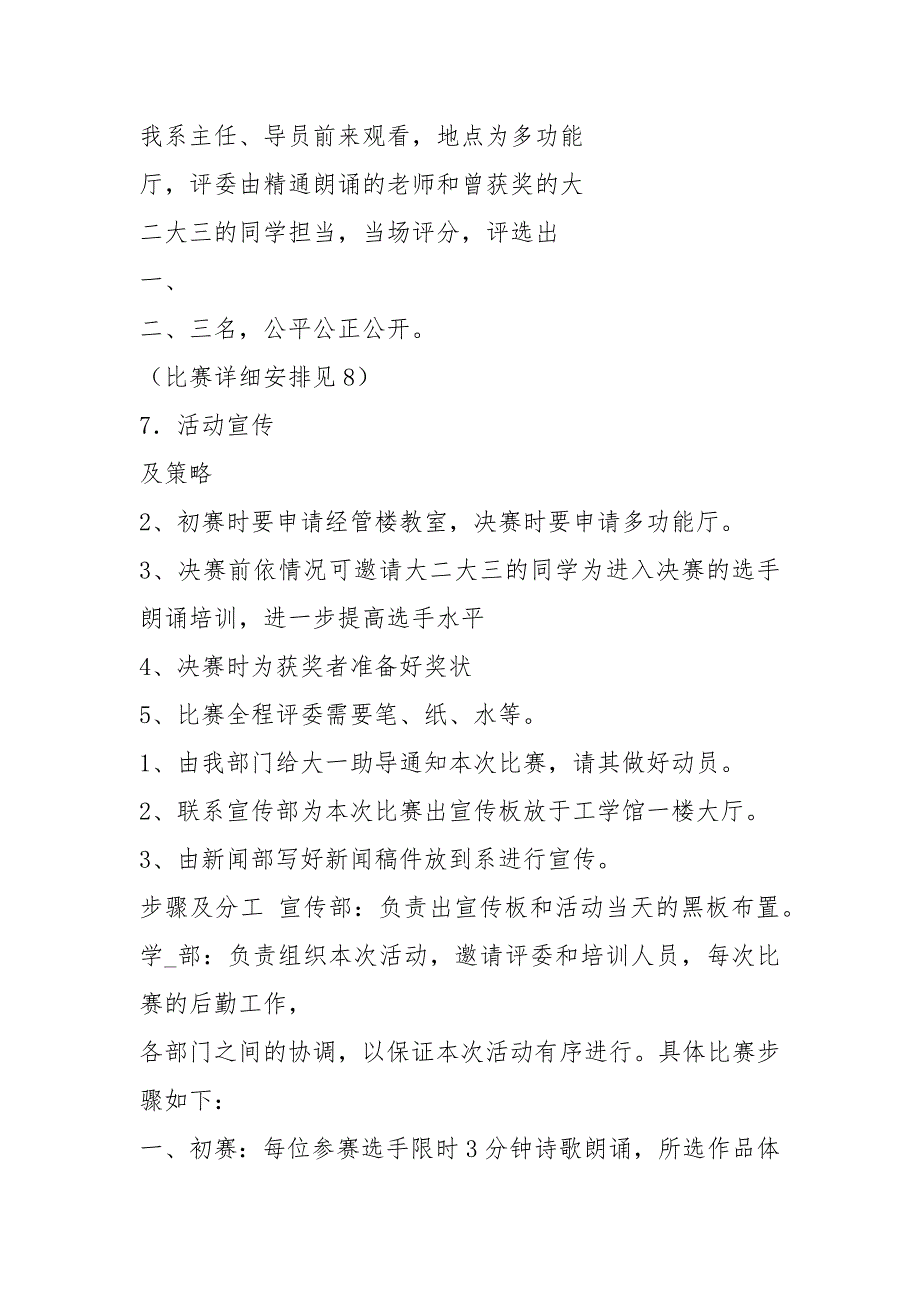 我系主任、导员前来观看，地点为多功能
厅，评委由精通朗诵的老师和曾获奖的大
二大三的同学担当，当场评分，评选出
一、
二、三名，公平公正公开。
（比赛详细安排见 8）
7．活动宣传
及策略
2、初赛时要申请经管楼教室，决赛时要申请多功能厅。
3、决赛前依情况可邀请大二大三的同学为进入决赛的选手
朗诵培训，进一步提高选手水平
4、决赛时为获奖者准备好奖状
5、比赛全程评委需要笔、纸、水等。
1、由我部门给大一助导通知本次比赛，请其做好动员。
2、联系宣传部为本次比赛出宣传板放于工学馆一楼大厅。
3、由新闻部写好新闻稿件放到系进行宣传。
步骤及分工 宣传部：负责出宣传板和活动当天的黑板布置。
学_部：负责组织本次活动，邀请评委和培训人员，每次比
赛的后勤工作，
各部门之间的协调，以保证本次活动有序进行。具体比赛步
骤如下：
一、初赛：每位参赛选手限时 3 分钟诗歌朗诵，所选作品体